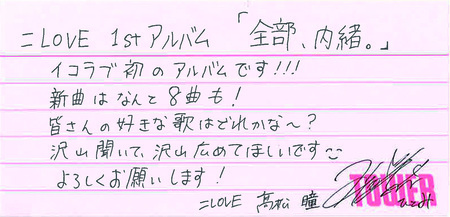 =LOVE 1stアルバム「全部、内緒。」
イコラブ初のアルバムです!!!
新曲はなんと8曲も!
皆さんの好きな歌はどれかな〜?
沢山聞いて、沢山広めてほしいです
よろしくお願いします!
=LOVE 髙松 瞳
ひとみ
TOWER